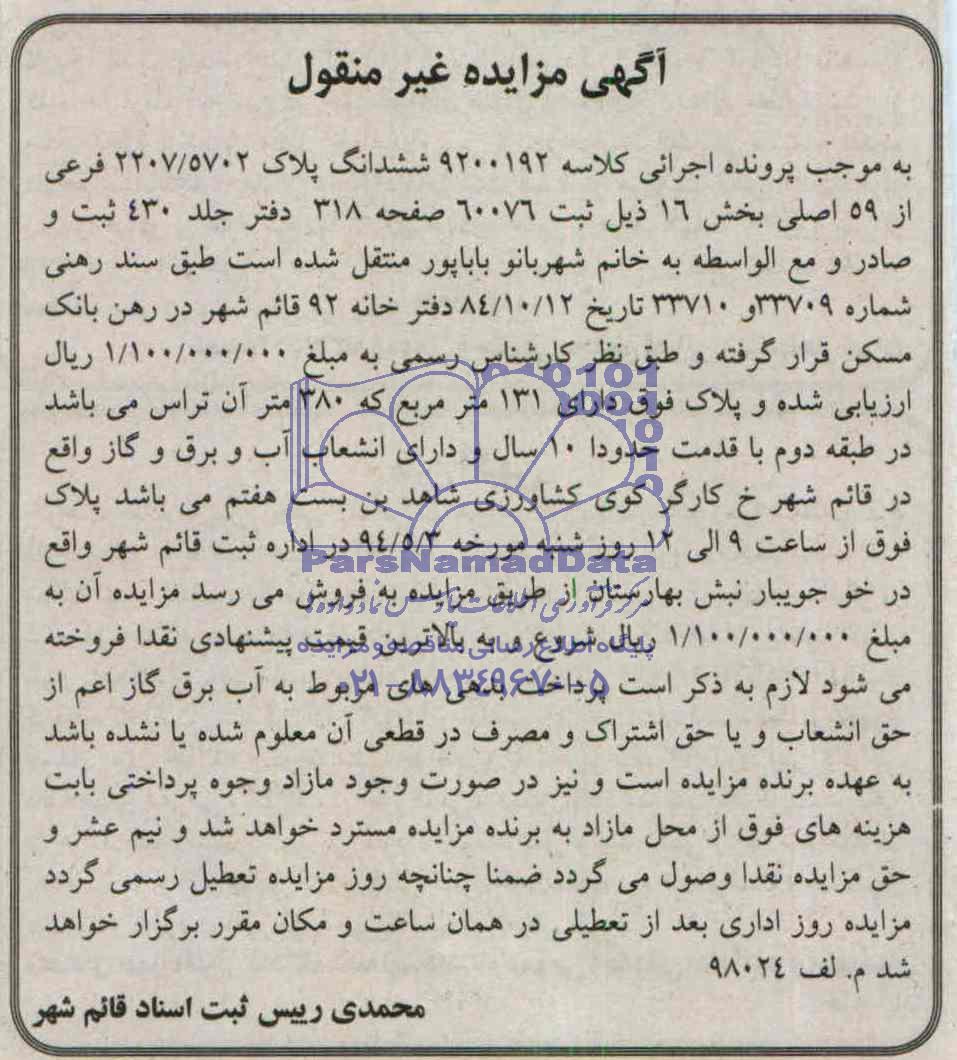 آگهی مزایده غیر منقول
به موجب پرونده اجرائی کلاسه ۹۲۰۰۱۹۲ ششدانگ پلاک ۲۲۰۷/۵۷۰۲ فرعی
از ۵۹ اصلی بخش ۱۶ ذیل ثبت ۶۰۰۷۶ صفحه ۳۱۸ دفتر جلد ۴۳۰ ثبت و
صادر و مع الواسطه به خانم شهربانو باباپور منتقل شده است طبق سند رهنی
شماره ۳۳۷۰۹و ۳۳۷۱۰ تاریخ ۸۴/۱۰/۱۲ دفتر خانه ۹۲ قائم شهر در رهن بانک
مسکن قرار گرفته و طبق نظر کارشناس رسمی به مبلغ ۱/۱۰۰/۰۰۰/۰۰۰ ریال
ارزیابی شده و پلاک فوق دارای ۱۳۱ متر مربع که ۳۸۰ متر آن تراس می باشد
در طبقه دوم با قدمت حدودا ۱۰ سال و دارای انشعاب آب و برق و گاز واقع
در قائم شهر خ کارگر کوی کشاورزی شاهد بن بست هفتم می باشد پلاک
فوق از ساعت ۹ الی ۱۲ روز شنبه مورخه ۹۴/۵/۳ در اداره ثبت قائم شهر واقع
در خو جویبار نبش بهارستان از طریق مزایده به فروش می رسد مزایده آن به
مبلغ ۱/۱۰۰/۰۰۰/۰۰۰ ریال شروع و به بالاترین قیمت پیشنهادی نقدا فروخته
می شود لازم به ذکر است پرداخت بدهی های مربوط به آب برق گاز اعم از
حق انشعاب و یا حق اشتراک و مصرف در قطعی آن معلوم شده یا نشده باشد
به عهده برنده مزایده است و نیز در صورت وجود مازاد وجوه پرداختی بابت
هزینه های فوق از محل مازاد به برنده مزایده مسترد خواهد شد و نیم عشر و
حق مزایده نقدا وصول می گردد ضمنا چنانچه روز مزایده تعطیل رسمی گردد
مزایده روز اداری بعد از تعطیلی در همان ساعت و مکان مقرر برگزار خواهد
شد م. لف ۹۸۰۲۴
محمدی رییس ثبت اسناد قائم شهر
ParsNamadData
پایگاه اطلاع رسانی مناقصه و مزایده
۰۲۱-۸۸۳۴۹۶۷۰-۵